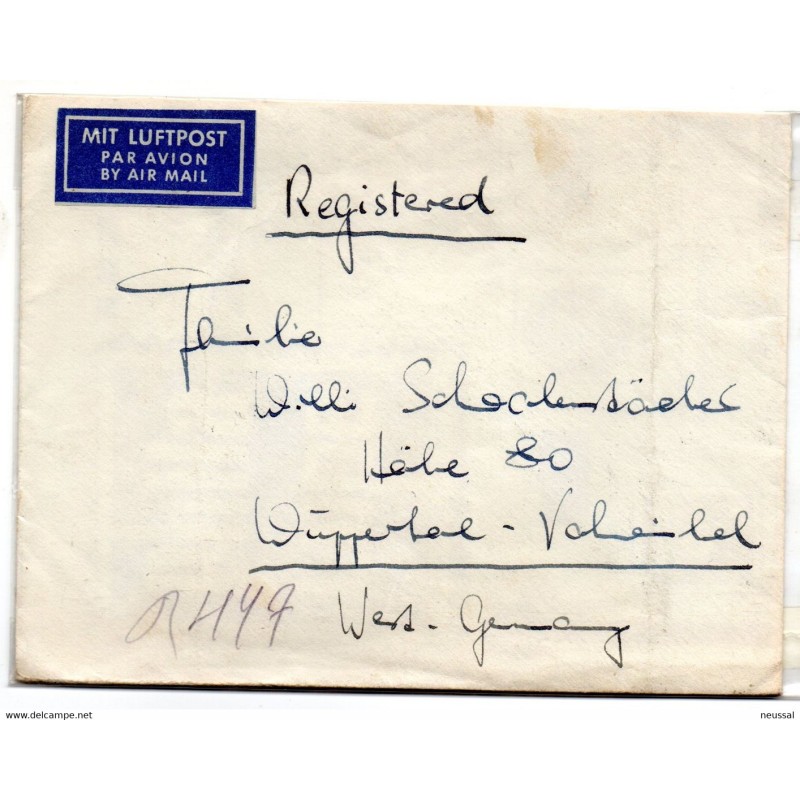 MIT LUFTPOST
PAR AVION
BY AIR MAIL
Registered
Familie
Willi
Höhe 80
Wuppertal - Vohwinkel
West-Germany
R 447
www.delcampe.net
neussal